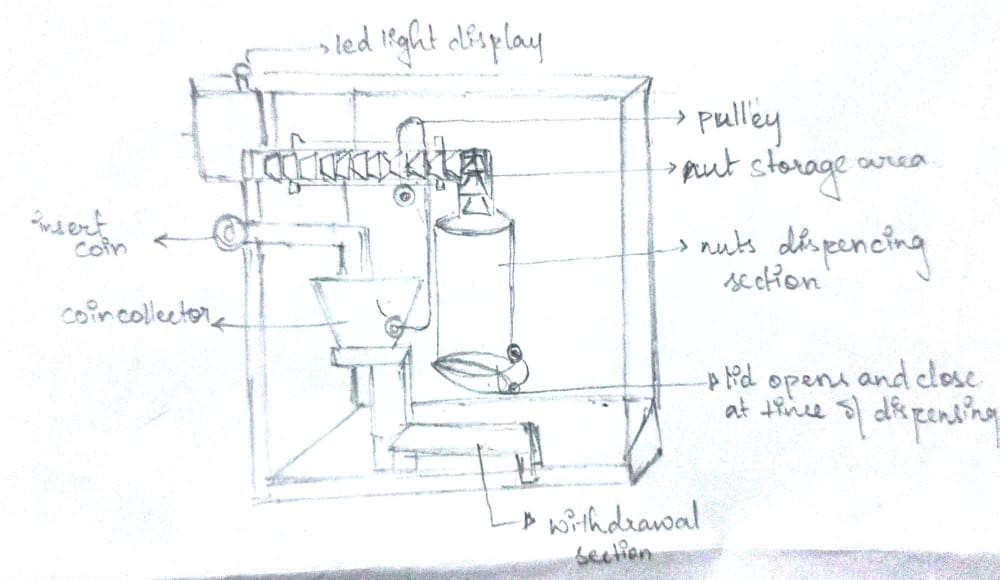 led light display
pulley
nut storage area
insert
coin
nuts dispencing
section
coincollector
lid opens and close
at time of dispensing
withdrawal
section